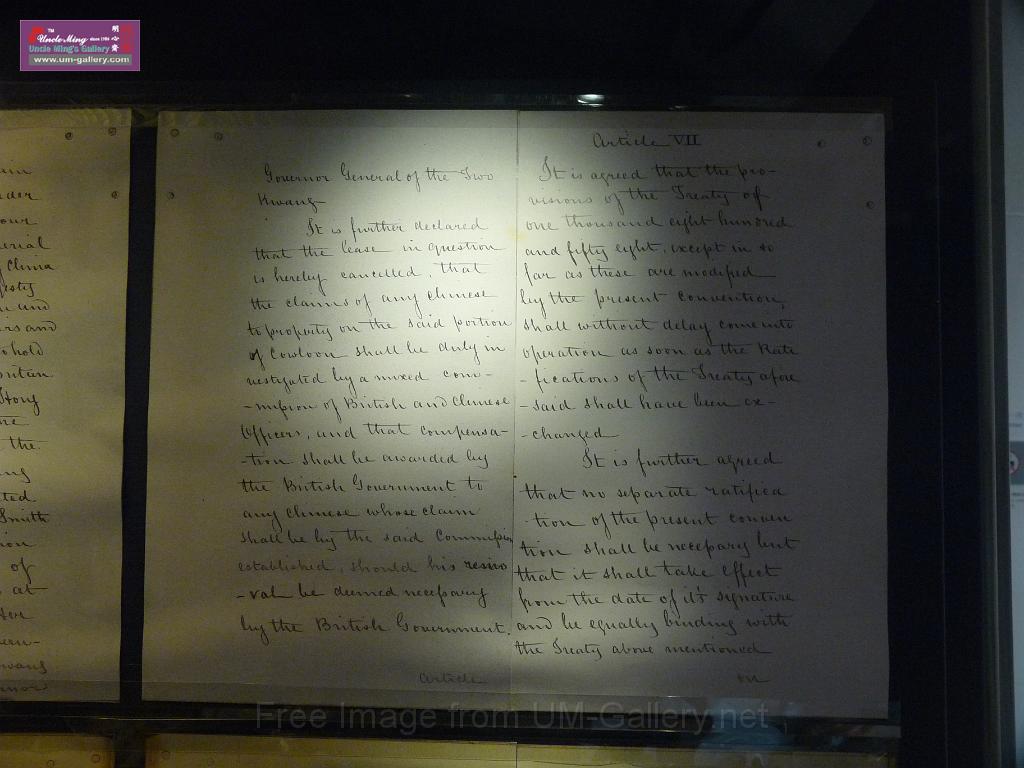 TM
Uncle Ming since 1986
Uncle Ming's Gallery
www.um-gallery.com
our
erial
China
n and
rs and
hold
Hong
the
ted
Smith
of
at
Governor General of the Two
Kwang
It is further declared
that the lease in question
is hereby cancelled, that
the claims of any Chinese
to property on the said portion
of Cowloon shall be duly in
vestigated by a mixed com-
-mission of British and Chinese
Officers, and that compensa-
-tion shall be awarded by
the British Government to
any Chinese whose claim
shall be by the said Commission
established, should his remo
-val be deemed necessary
by the British Government.
Article
Article VII
It is agreed that the pro-
visions of the Treaty of
one thousand eight hundred
and fifty eight, except in so
far as these are modified
by the present convention,
shall without delay come into
operation as soon as the Rati
-fications of the Treaty afore
-said shall have been ex-
-changed
It is further agreed
that no separate ratifica
-tion of the present conven
tion shall be necessary but
that it shall take effect
from the date of its signature
and be equally binding with
the Treaty above mentioned
on
Free Image from UM-Gallery.net